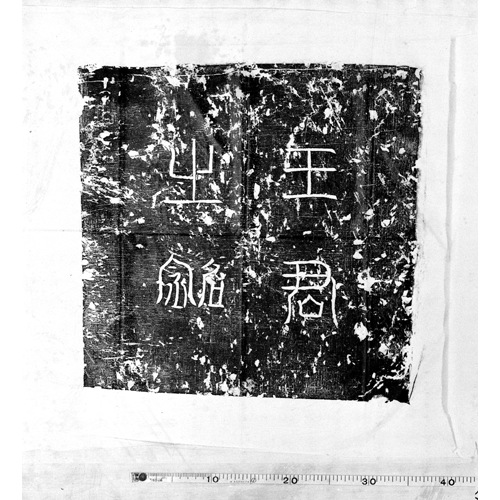 王君
之銘
10 20 30 40